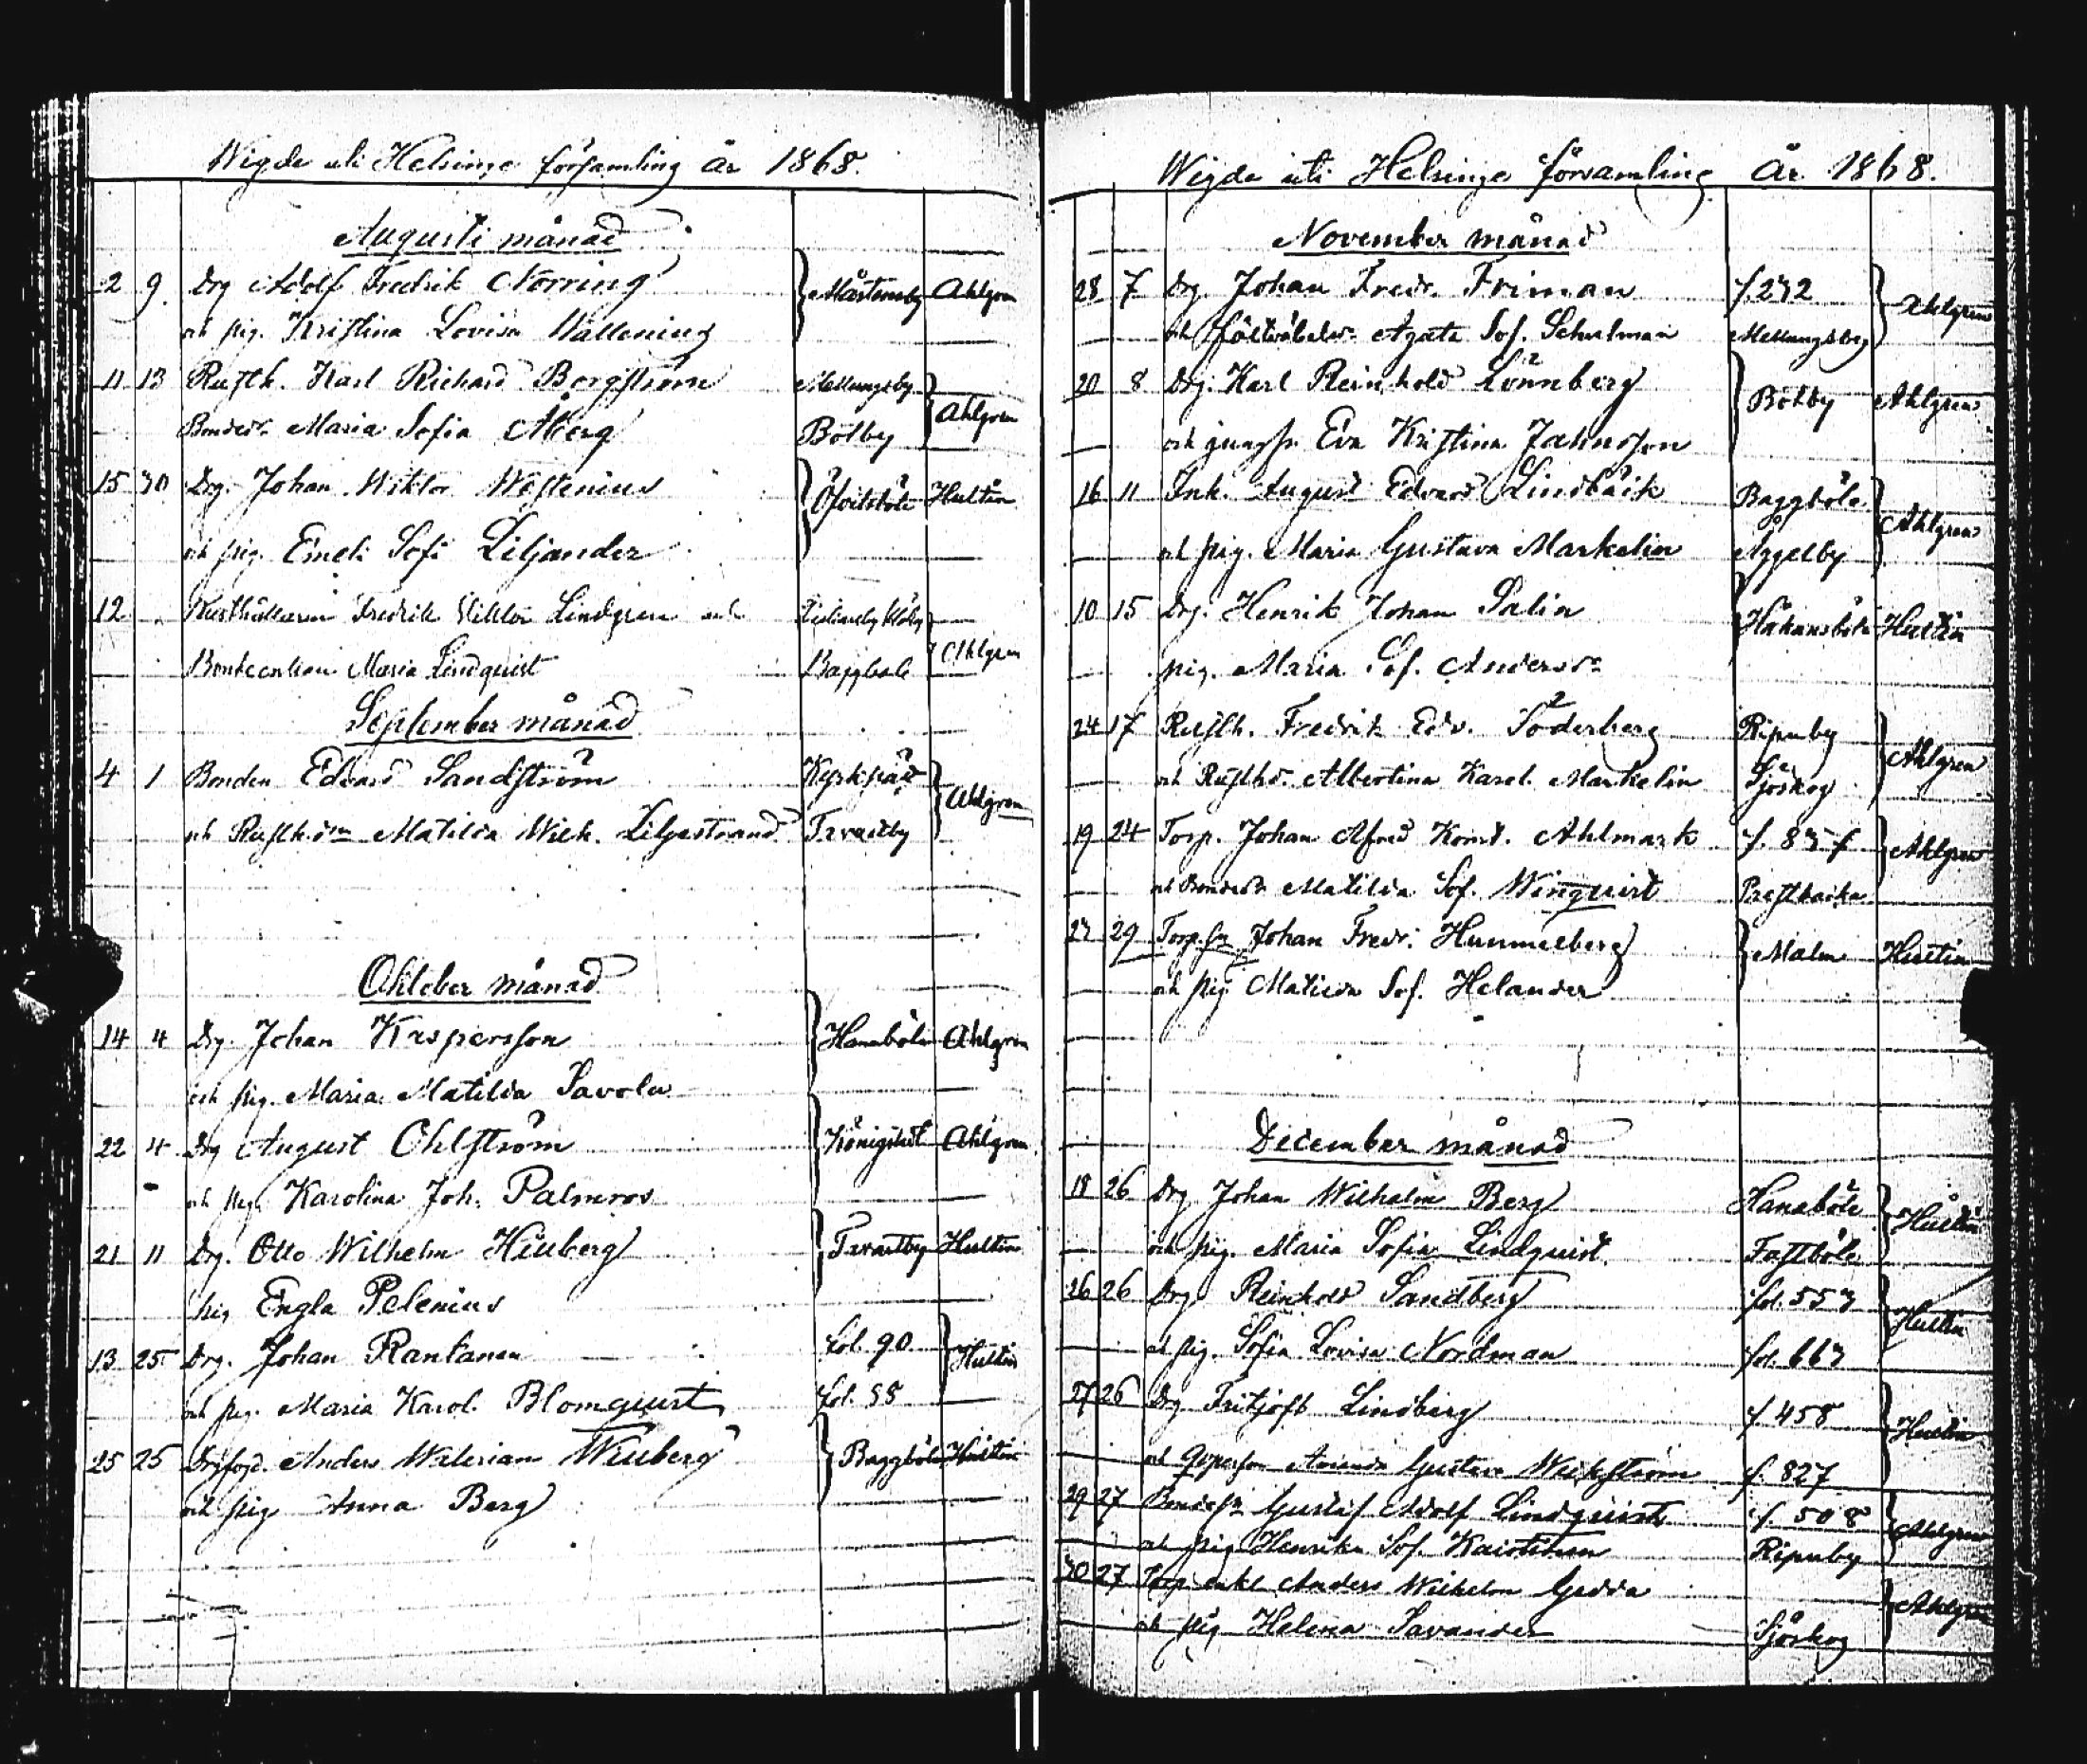 Wigde uti Helsinge församling år 1868.
Augusti månad
2 9. Drg Adolf Fredrik Norring Mårtensby Ahlgren
och pig. Kristina Lovisa Wallenius
11 13 Rusth. Karl Richard Bergström Mellungsby Ahlgren
Bonded. Maria Sofia Åberg Botby
15 30 Drg. Johan Wiktor Westenius Hultin
och pig. Emeli Sofi Liljander
12 Fredrik Viktor Lindgren och Ahlgren
Maria Lindquist Baggböle
September månad
4 1 Bonden Edvard Sandström Kyrkslätt Ahlgren
och Rusth.dr Matilda Wilh. Liljestrand Tavastby
Oktober månad
14 4 Drg. Johan Kaspersson Hanaböle Ahlgren
och pig. Maria Matilda Savola
22 4 Drg August Ohlström Königstedt Ahlgren
och pig. Karolina Joh. Palmros
21 11 Drg. Otto Wilhelm Tavastby Hultin
pig Engla Pelenius
13 25 Drg. Johan Rantanen fol. 90 Hultin
och pig. Maria Karol. Blomqvist fol. 88
25 25 Drgfogd. Anders Walerian Wiuberg Baggböle Hultin
och pig Anna Berg
Wigde uti Helsinge församling År 1868.
November månad
28 7 Drg. Johan Fredr. Friman f. 232 Ahlgren
och Agata Sof. Schulman Mellungsby
20 8 Drg. Karl Reinhold Lönnberg Botby Ahlgren
och jungfr. Eva Kristina Jahnsson
16 11 Inh. August Edvard Lindbäck Baggböle Ahlgren
och pig. Maria Gustava Markelin Åggelby
10 15 Drg. Henrik Johan Salin Håkansböle Hultin
pig. Maria Sof. Andersdr
24 17 Rusth. Fredrik Edv. Söderberg Ripuby Ahlgren
och Rusthd. Albertina Karol. Markelin Sjöskog
19 24 Torp. Johan Alfred Konst. Ahlmark f. 837 Ahlgren
och Bondedr Matilda Sof. Winquist Prestbacka
27 29 Torp.sn Johan Fredr. Hummelberg Malm Hultin
och pig Matilda Sof. Helander
December månad
18 26 Drg Johan Wilhelm Berg Hanaböle Hultin
och pig. Maria Sofia Lindquist Fastböle
26 26 Drg. Reinhold Sandberg fol. 553 Hultin
och pig. Sofia Lovisa Nordman fol. 663
27 26 Drg Fritjoft Lindberg f. 458 Hultin
och Amanda Gustava f. 827
29 27 Bondesn Gustaf Adolf Lindquist f. 508 Ahlgren
och pig Henrika Sof. Ripuby
30 27 Torp enkl Anders Wilhelm Gadda Ahlgren
och pig Helena Savander Sjöskog